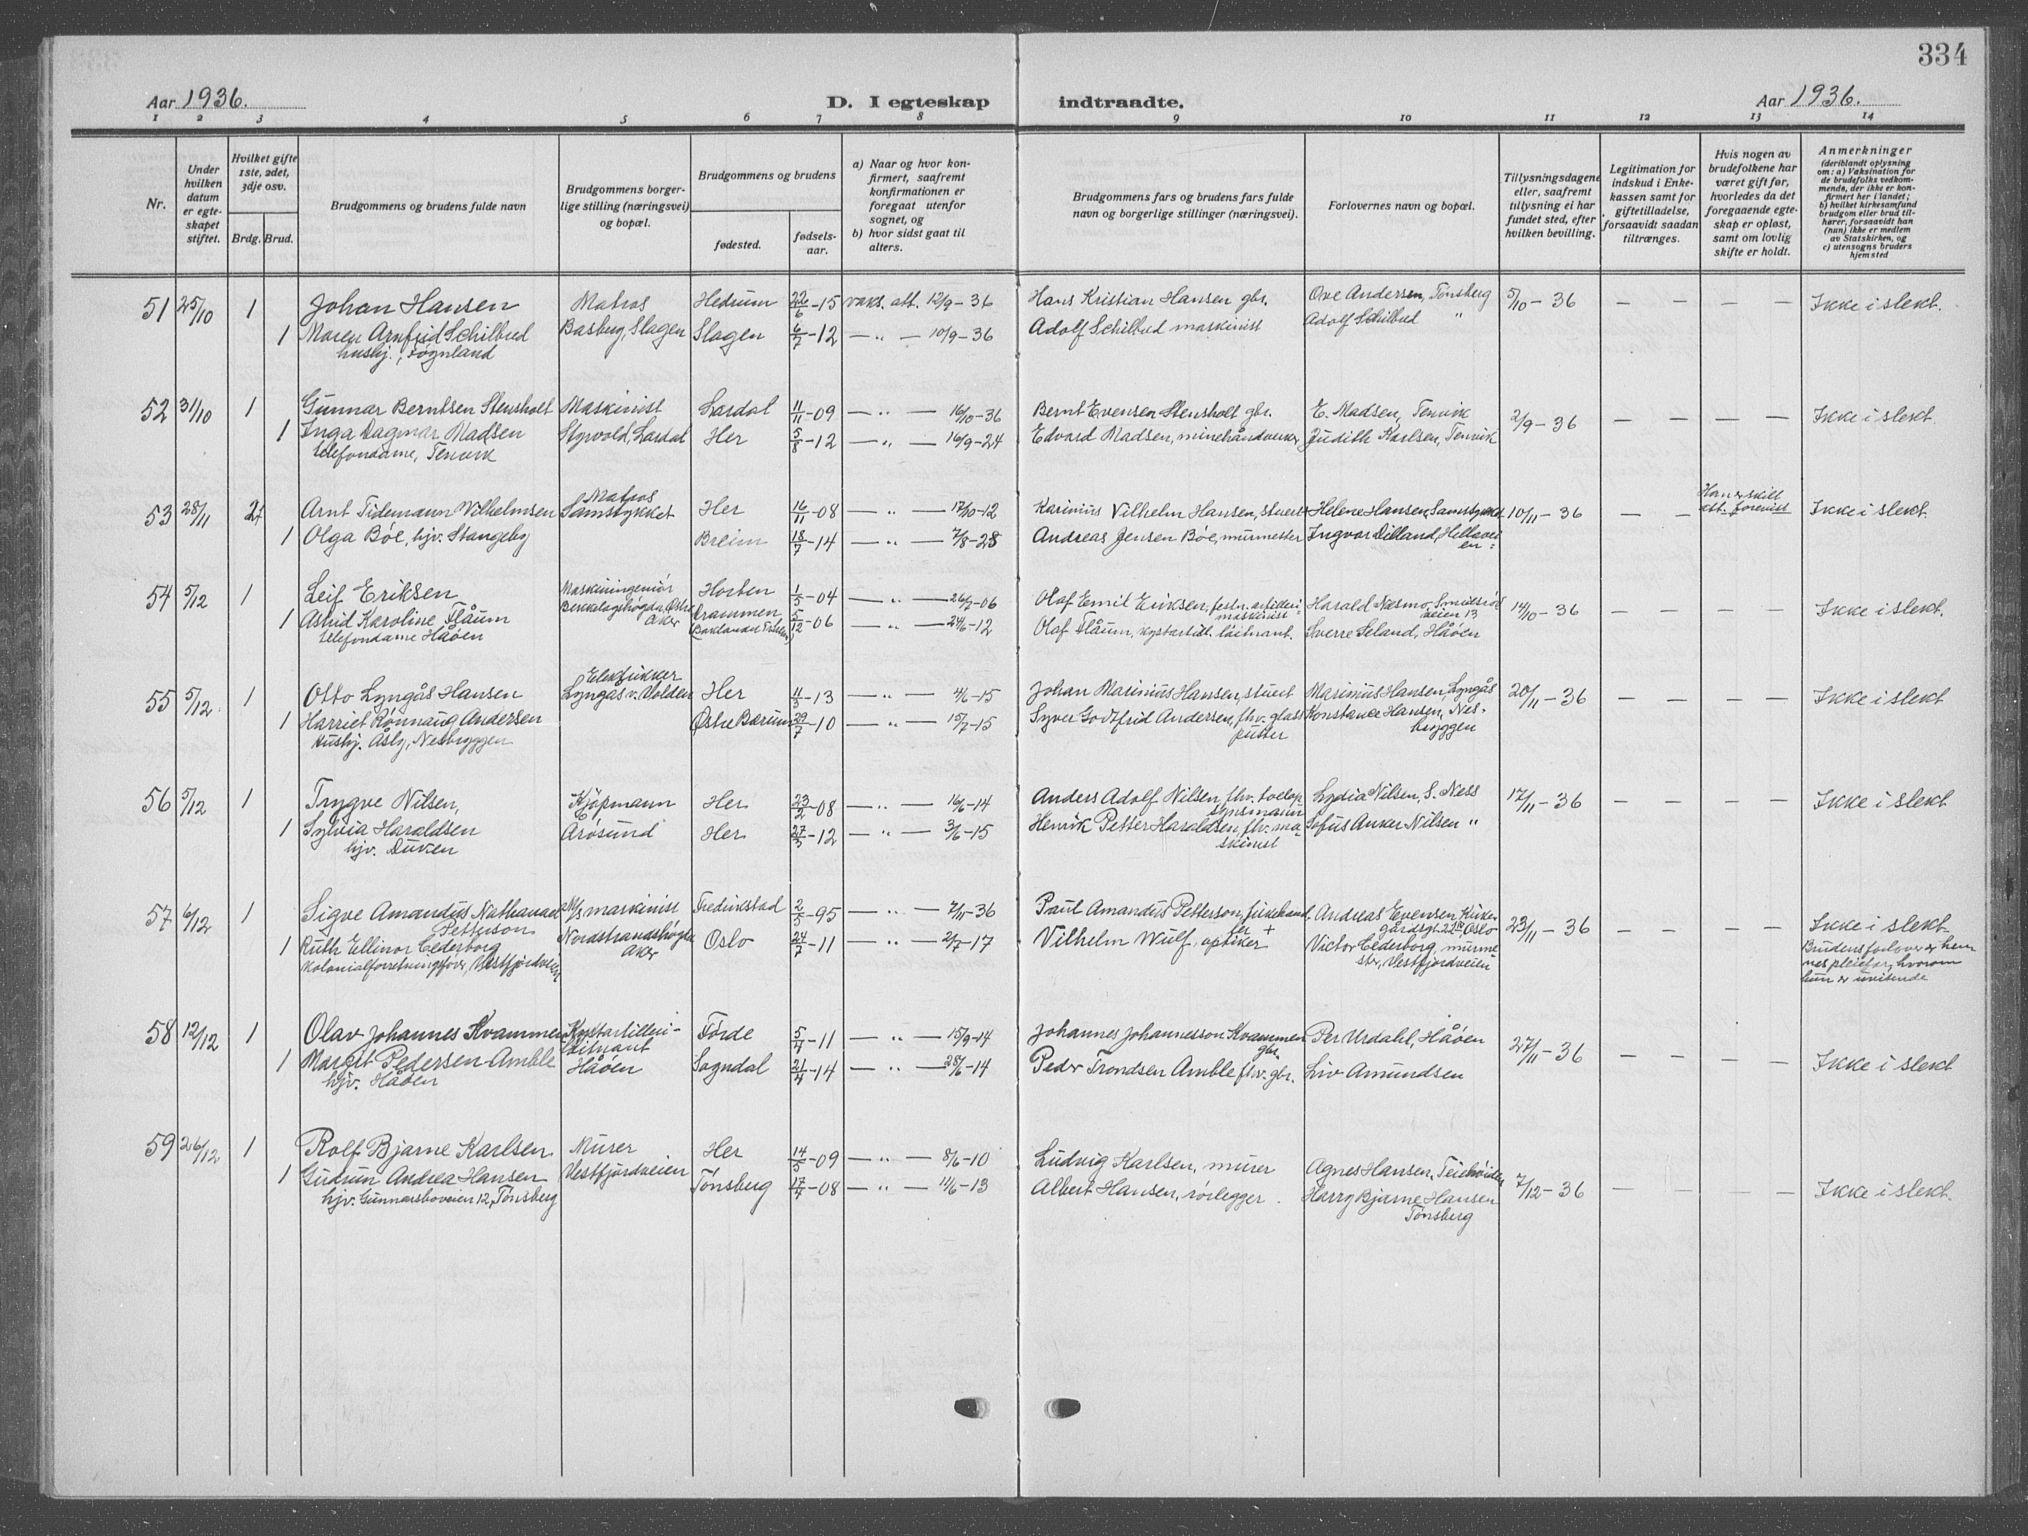 334
Aar 1936.
D. I egteskap indtraadte.
Aar 1936.
1 2 3 4 5 6 7 8 9 10 11 12 13 14
Nr.
Under hvilken datum er egteskapet stiftet.
Hvilket gifte 1ste, 2det, 3dje osv.
Brdg. Brud.
Brudgommens og brudens fulde navn
Brudgommens borgerlige stilling (næringsvei) og bopæl.
Brudgommens og brudens
fødested.
fødselsaar.
a) Naar og hvor konfirmert, saafremt konfirmationen er foregaat utenfor sognet, og
b) hvor sidst gaat til alters.
Brudgommens fars og brudens fars fulde navn og borgerlige stillinger (næringsvei).
Forlovernes navn og bopæl.
Tillysningsdagene eller, saafremt tillysning ei har fundet sted, efter hvilken bevilling.
Legitimation for indskud i Enkekassen samt for giftetilladelse, forsaavidt saadan tiltrænges.
Hvis nogen av brudefolkene har været gift før, hvorledes da det foregaaende egteskap er opløst, samt om lovlig skifte er holdt.
Anmerkninger
(deriblandt oplysning om: a) Vaksination for de brudefolks vedkommende, der ikke er konfirmert her i landet;
b) hvilket kirkesamfund brudgom eller brud tilhører, forsaavidt han (hun) ikke er medlem av Statskirken, og
c) utensogns bruders hjemsted
51 25/10 1 Johan Hansen Matros Hedrum 22/6-15 vaks. att. 12/9-36 Hans Kristian Hansen gbr. Ove Andersen, Tønsberg 5/10-36 — — — Ikke i slekt.
1 Maren Arnfrid Schilbred Basberg, Slagen Slagen 6/7-12 — " — 10/9-36 Adolf Schilbred maskinist Adolf Schilbred "
husbj., Føynland
52 31/10 1 Gunnar Berntsen Stensholt Maskinist Lardal 11/11-09 — " — 16/10-36 Bernt Evensen Stensholt gbr. E. Madsen, Tenvik 2/9-36 — — — Ikke i slekt.
1 Inga Dagmar Madsen Styrvold, Lardal Her 5/8-12 — " — 16/9-24 Edvard Madsen, minehåndverker Judith Karlsen, Tenvik
telefondame, Tenvik
53 28/11 2 Arnt Tidemann Vilhelmsen Matros Samstykket Her 16/11-08 — " — 17/10-12 Karinius Vilhelm Hansen, stuert Helene Hansen, Samstykket 10/11-36 — — Han er skilt att. forevist Ikke i slekt.
1 Olga Bøe, hjv. Stangeby Breim 18/7-14 — " — 7/8-28 Andreas Jensen Bøe, murmester Ingvar Dilland, Hellaveien
54 5/12 1 Leif Eriksen Maskiningeniør Horten 1/5-04 — " — 26/7-06 Olaf Emil Eriksen, festn. artilleri maskinist Harald Nesmo, Smidsrødveien 13 14/10-36 — — — Ikke i slekt.
1 Astrid Karoline Flåum Bekkelagshøgda, Østre Aker Drammen 5/12-06 — " — 24/6-12 Olaf Flåum, kystartill. løitnant. Sverre Seland, Håøen
telefondame Håøen
55 5/12 1 Otto Lyngås Hansen Elektriker Lyngås v. Volden Her 11/3-13 — " — 4/6-15 Johan Marinius Hansen, stuert Marinius Hansen, Lyngås 20/11-36 — — — Ikke i slekt
1 Harriet Rønnaug Andersen Østre Bærum 29/7-10 — " — 15/7-15 Syver Godtfrid Andersen, fhv. glasspuster Konstance Hansen, Nesbryggen
husbj. Åsly, Nesbryggen
56 5/12 1 Trygve Nilsen, Kjøpmann Her 23/2-08 — " — 16/6-14 Anders Adolf Nilsen, fhv. toldopsynsmann Lydia Nilsen, S. Ness 17/11-36 — — — Ikke i slekt
1 Sylvia Haraldsen Årøsund Her 27/3-12 — " — 3/6-15 Henrik Petter Haraldsen, fhv. maskinist Sofus Anker Nilsen "
hjv. Duken
57 6/12 1 Sigve Amandus Nathanael Petterson M/s maskinist Fredrikstad 2/5-95 — " — 7/11-36 Paul Amandus Petterson, fiskehandler + Andreas Evensen Kirkegårdsgt. 22 Oslo 23/11-36 — — — Ikke i slekt
1 Ruth Ellinor Cederborg Nordstrandshøgda Aker Oslo 24/7-11 — " — 2/7-17 Vilhelm Wulf, optiker Victor Cederborg, murmester, Vestfjordveien Brudens forlover er hennes pleiefar, hvorom hun er uvitende
Kolonialforretning, Vestfjordveien
58 12/12 1 Olav Johannes Kvammen Kystartilleriløitnant Førde 5/4-11 — " — 15/9-14 Johannes Johannesson Kvammen gbr. Per Urdahl, Håøen 27/11-36 — — — Ikke i slekt
1 Margit Pedersen Amble Håøen Sogndal 21/4-14 — " — 28/6-14 Peder Trondsen Amble fhv. gbr. Liv Amundsen
hjv. Håøen
59 26/12 1 Rolf Bjarne Karlsen Murer Her 14/5-09 — " — 8/6-10 Ludvig Karlsen, murer Agnes Hansen, Teiehøiden 7/12-36 — — — Ikke i slekt.
1 Gudrun Andrea Hansen Vestfjordveien Tønsberg 17/4-08 — " — 11/6-13 Albert Hansen, rørlegger. Harry Bjarne Hansen Tønsberg
hjv. Gunnarsboveien 12, Tønsberg